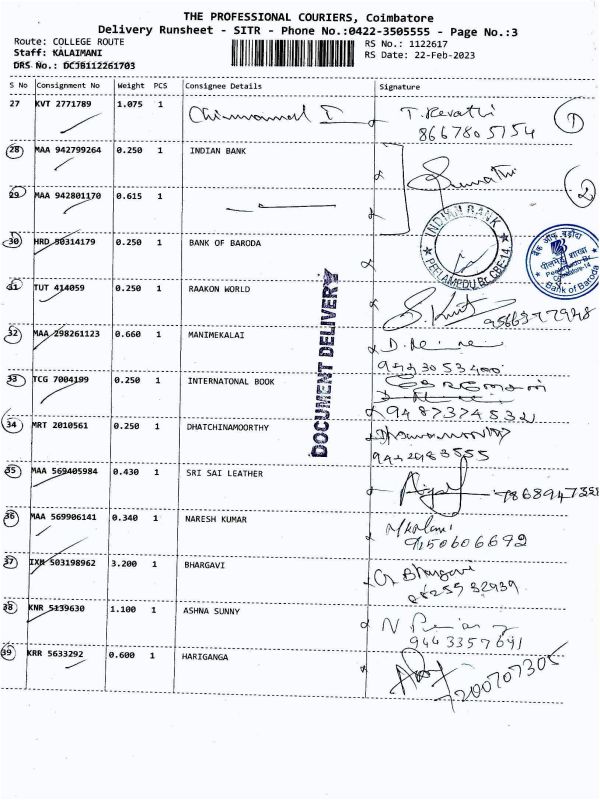 THE PROFESSIONAL COURIERS, Coimbatore
Delivery Runsheet - SITR - Phone No.:0422-3505555 - Page No.:3
Route: COLLEGE ROUTE
RS No.: 1122617
Staff: KALAIMANI
RS Date: 22-Feb-2023
DRS No.: DCJB112261703
S No Consignment No Weight PCS Consignee Details Signature
27 KVT 2771789 1.075 1 T. Revathi
8667805754
1
28 MAA 942799264 0.250 1 INDIAN BANK
Sumathi
2
29 MAA 942801170 0.615 1
INDIAN BANK
PEELAMPDU BR. CBE-14.
30 HRD 50314179 0.250 1 BANK OF BARODA
बैंक ऑफ़ बड़ौदा
Bank of Baroda
31 TUT 414059 0.250 1 RAAKON WORLD
DOCUMENT DELIVERY
32 MAA 298261123 0.660 1 MANIMEKALAI
33 TCG 7004199 0.250 1 INTERNATONAL BOOK
9487374532
34 MRT 2010561 0.250 1 DHATCHINAMOORTHY
35 MAA 569405984 0.430 1 SRI SAI LEATHER
36 MAA 569906141 0.340 1 NARESH KUMAR
9150606692
37 IXM 503198962 3.200 1 BHARGAVI
G Bhargavi
38 KNR 5139630 1.100 1 ASHNA SUNNY
9443357641
39 KRR 5633292 0.600 1 HARIGANGA
7200707305